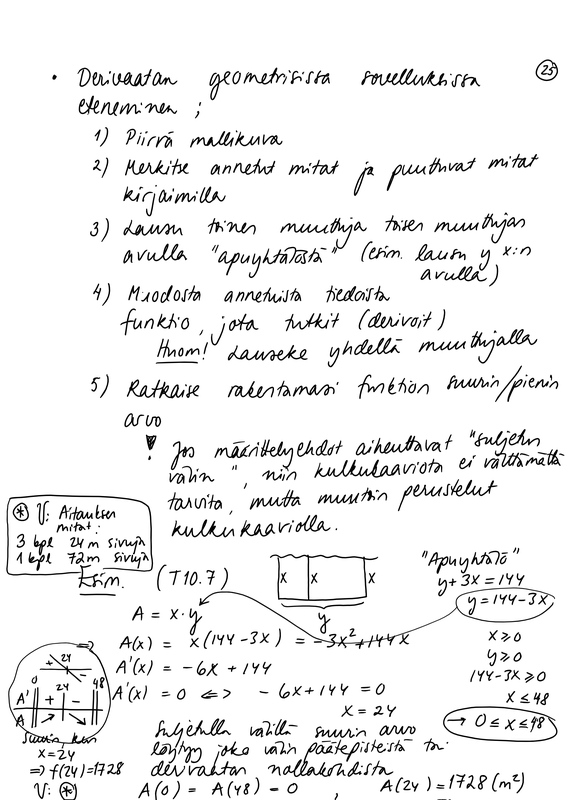 25
• Derivaatan geometrisissa sovelluksissa
eteneminen ;
1) Piirrä mallikuva
2) Merkitse annetut mitat ja puuttuvat mitat
kirjaimilla
3) Lausu toinen muuttuja toisen muuttujan
avulla "apuyhtälöstä" (esim. lausu y x:n
avulla)
4) Muodosta annetuista tiedoista
funktio, jota tutkit (derivoit)
Huom! Lauseke yhdellä muuttujalla
5) Ratkaise rakentamasi funktion suurin/pienin
arvo
! Jos määrittelyehdot aiheuttavat "suljetun
välin", niin kulkukaaviota ei välttämättä
tarvita, mutta muutoin perustelut
kulkukaaviolla.
* V: Aitauksen
mitat:
3 kpl 24 m sivuja
1 kpl 72 m sivuja
Esim. (T10.7)
x x x
y
"Apuyhtälö"
y + 3x = 144
y = 144 - 3x
A = x · y
=> A(x) = x(144 - 3x) = -3x² + 144x
A'(x) = -6x + 144
A'(x) = 0 <=> -6x + 144 = 0
x = 24
x ≥ 0
y ≥ 0
144 - 3x ≥ 0
x ≤ 48
→ 0 ≤ x ≤ 48
+ 24 -
0 24 48
A' + -
A
suurin, kun
x = 24
=> f(24) = 1728
V: *
Suljetulla välillä suurin arvo
löytyy joko välin päätepisteistä tai
derivaatan nollakohdista
A(0) = A(48) = 0 , A(24) = 1728 (m²)